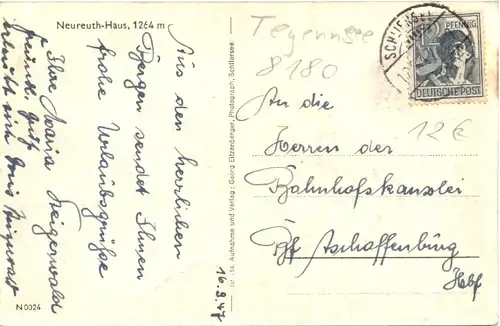 Neureuth-Haus, 1264 m
Aus den herrlichen
Bergen sendet Ihnen
frohe Urlaubsgrüße
Ihre Maria Steigerwald
freundl. grüßt
16.8.47
N 0024
Nr. 134. Aufnahme und Verlag: Georg Eitzenberger, Photograph, Schliersee
Tegernsee
8180
SCHLIERSEE
12 PFENNIG
DEUTSCHE POST
12 €
An die
Herren der
Bahnhofskanzlei
Bf Aschaffenburg
Hbf